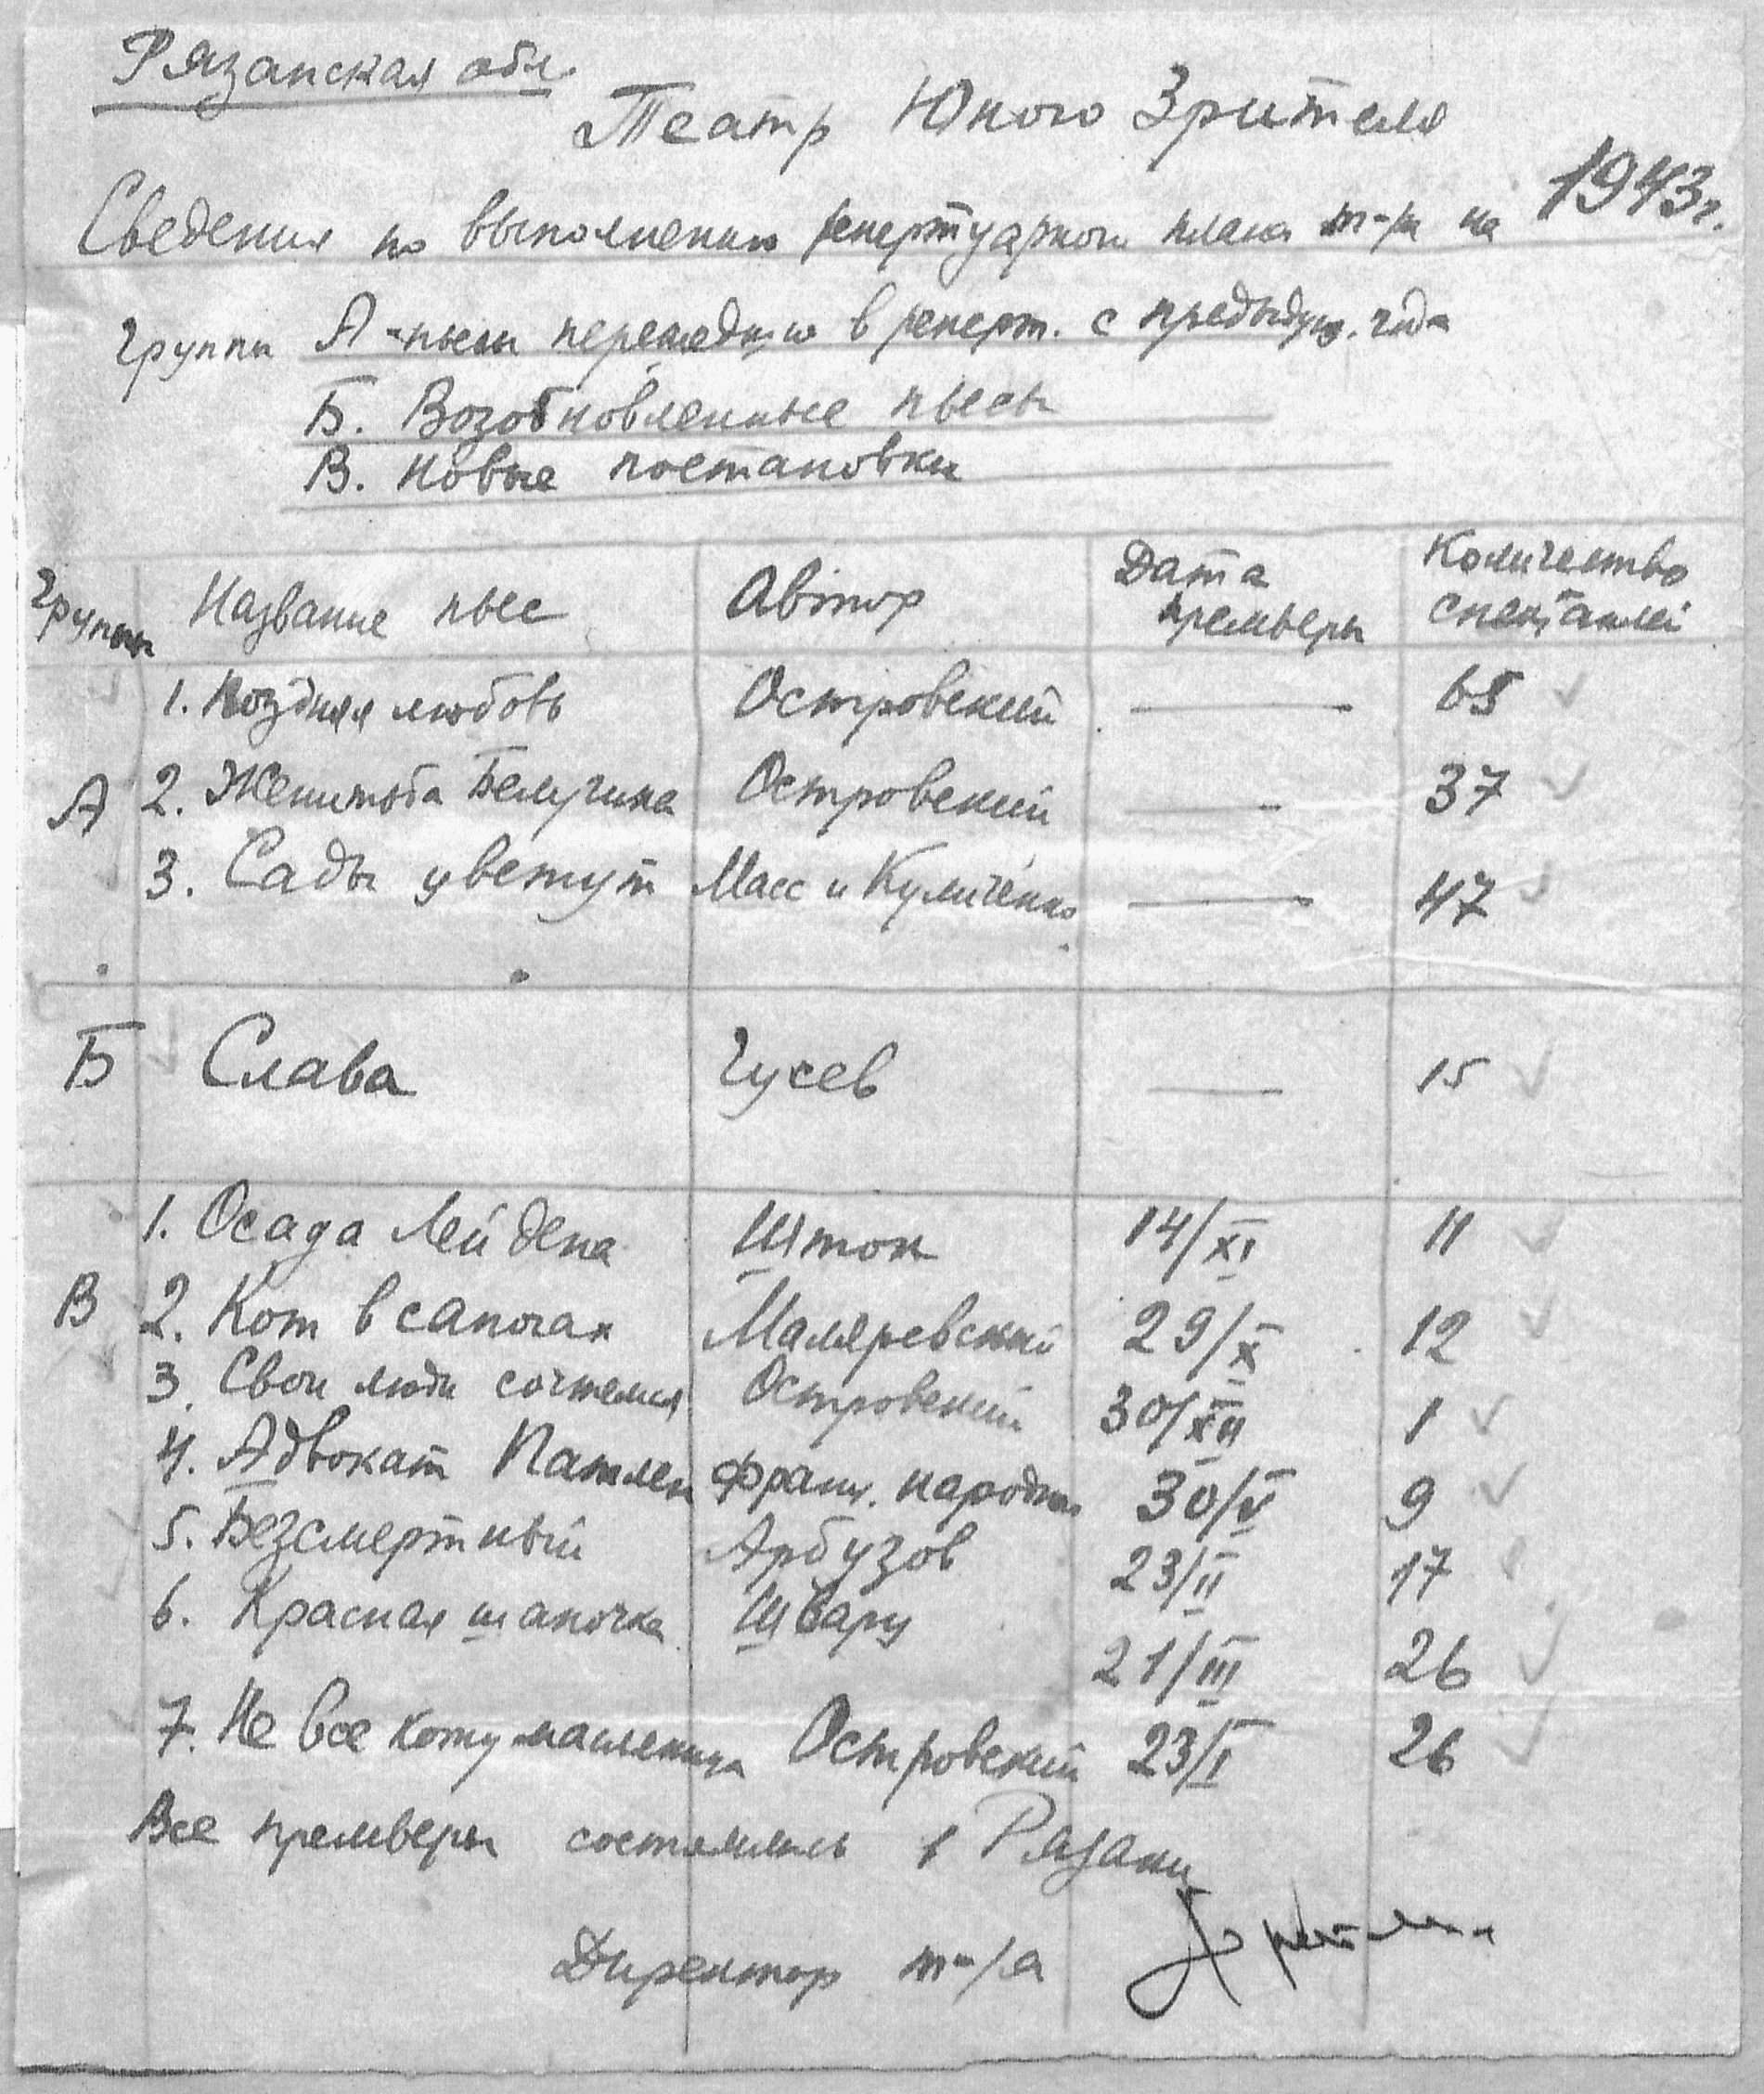 Рязанская обл.
Театр Юного Зрителя
Сведения по выполнению репертуарного плана т-ра на 1943 г.
Группы А - пьесы перешедшие в реперт. с предыдущ. года
Б. Возобновленные пьесы
В. Новые постановки
Группы Название пьес Автор Дата премьеры Количество спектаклей
1. Поздняя любовь Островский — 68
А 2. Женитьба Белугина Островский — 37
3. Сады цветут Масс и Куличенко — 47
Б Слава Гусев — 15
1. Осада Лейдена Шток 14/XI 11
В 2. Кот в сапогах Маляревский 29/X 12
3. Свои люди сочтемся Островский 30/XII 1
4. Адвокат Патлен Франц. народная 30/V 9
5. Безсмертный Арбузов 23/II 17
6. Красная шапочка Шварц 21/III 26
7. Не все коту масленица Островский 23/I 26
Все премьеры состоялись в Рязани
Директор т-ра